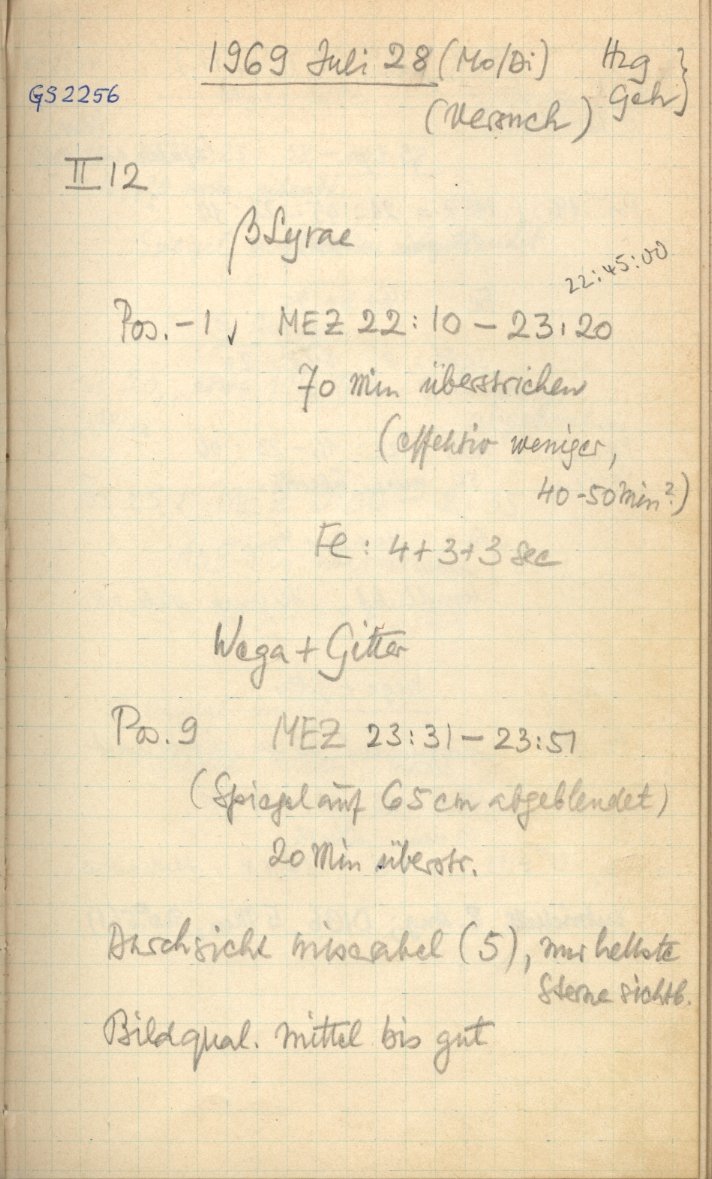 1969 Juli 28 (Mo/Di) Hzg }
GS2256
(Versuch) Gehr }
II 12
β Lyrae
22:45:00
Pos. -1, MEZ 22:10 - 23:20
70 Min überstrichen
(effektiv weniger,
40-50 Min?)
Fe: 4+3+3 sec
Wega + Gitter
Pos. 9 MEZ 23:31 - 23:51
(Spiegel auf 65 cm abgeblendet)
20 Min überstr.
Durchsicht miserabel (5), nur hellste
Sterne sichtb.
Bildqual. mittel bis gut